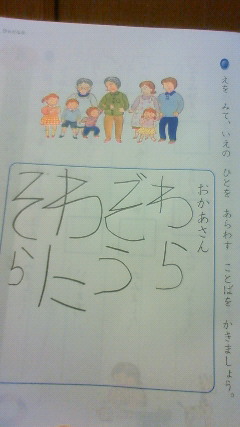 えを みて、いえの ひとを あらわす ことばを かきましょう。
おかあさん
わら
ぞう
わに
そら